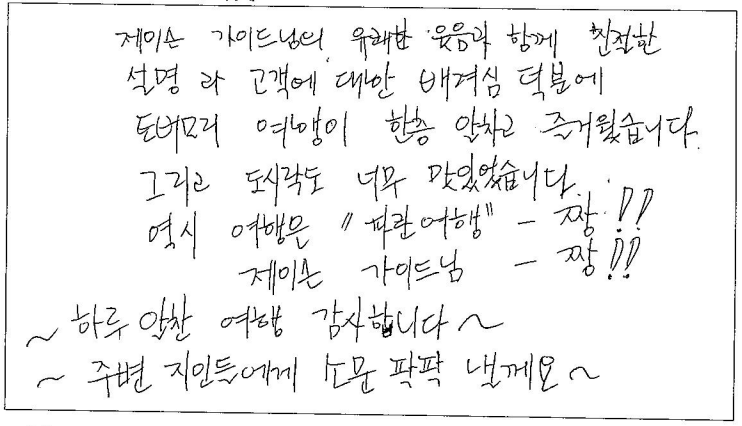 제이슨 가이드님의 유쾌한 웃음과 함께 친절한
설명과 고객에 대한 배려심 덕분에
토버모리 여행이 한층 알차고 즐거웠습니다.
그리고 도시락도 너무 맛있었습니다.
역시 여행은 "파란여행" - 짱!!
제이슨 가이드님 - 짱!!
~ 하루 알찬 여행 감사합니다 ~
~ 주변 지인들에게 소문 팍팍 낼께요 ~